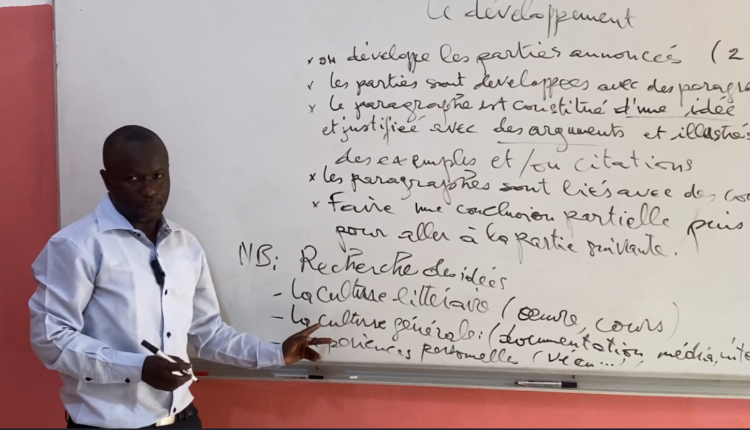 Le développement
x on développe les parties annoncées (2
v les parties sont développées avec des paragra
x le paragraphe est constitué d'une idée
et justifiée avec des arguments et illustrés
des exemples et/ou citations
x les paragraphes sont liés avec des co
x Faire une conclusion partielle puis
pour aller à la partie suivante.
NB: Recherche des idées
- La culture littéraire (œuvre, cours)
- La culture générale: (documentation, média, inte
personnelles